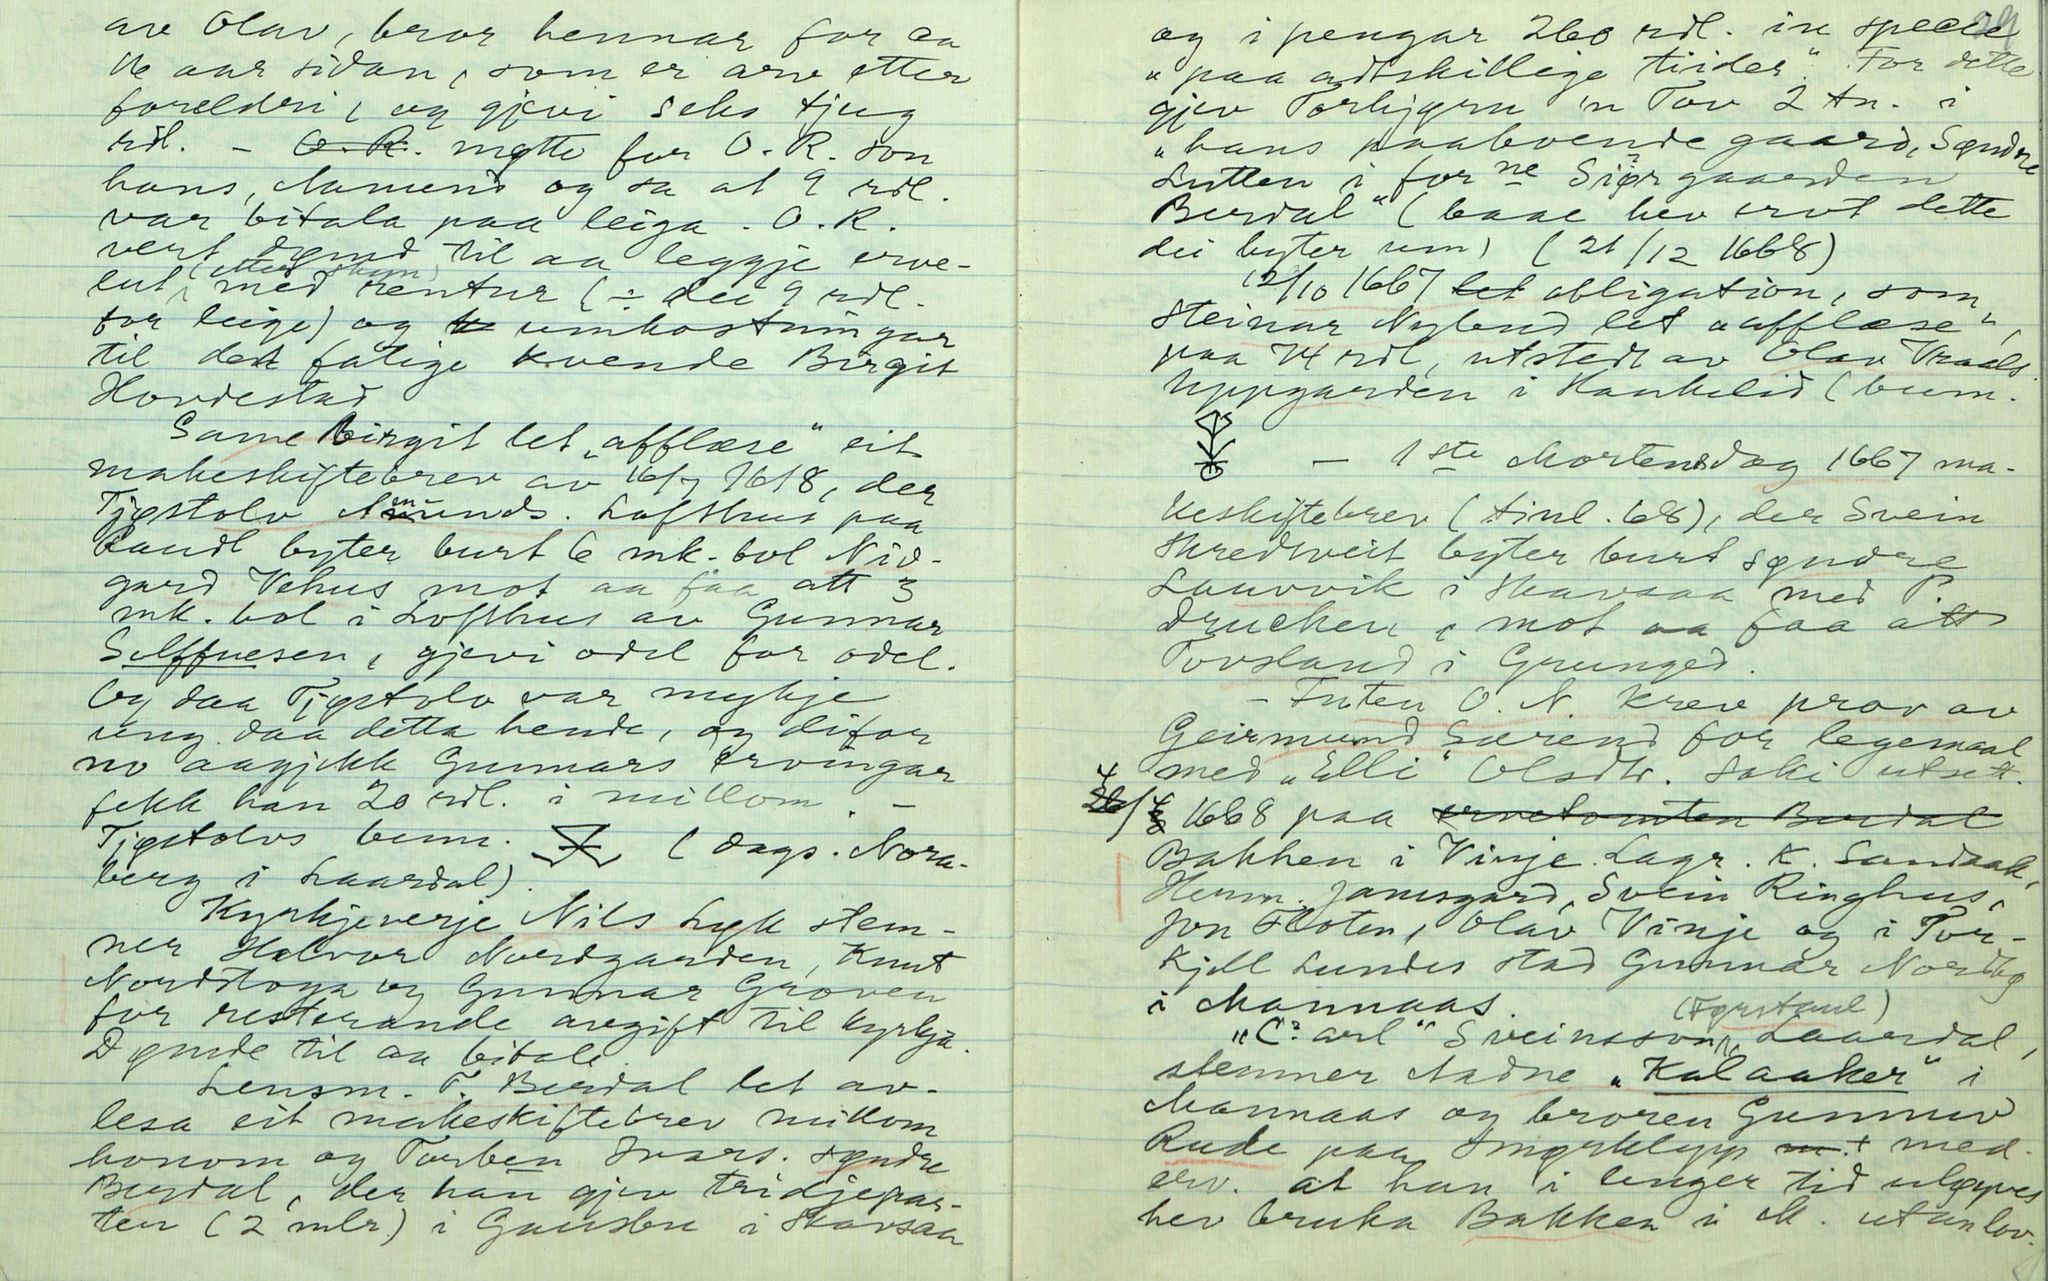 arv Olav, bror hennar for ca
16 aar sidan, som er arv etter
foreldri, og gjevi seks tjug
rdl. - O.R. møtte for O.R. son
hans, Aamund og sa at 9 rdl.
var bitala paa leiga. O.R.
vert dømd til aa leggje erve-
lut (etter skyn) med rentur (÷ dei 9 rdl.
for leige) og umkostningar
til det fatige kvende Birgit
Hovdestad
Same Birgit let „afflæse“ eit
makeskiftebrev av 16/7 1618, der
Tjøstolv Aamunds. Lofthus paa
Raudl byter burt 6 mk. bol Nid-
gard Vehus mot aa faa att 3
mk. bol i Lofthus av Gunnar
Solffuesen, gjevi odel for odel.
Og daa Tjøstolv var mykje
ung daa detta hende, og difor
no aagjekk Gunnars ervingar
fekk han 20 rdl. i millom. -
Tjøstolvs bum. (Dags. Nora-
berg i Laardal).
Kyrkjeverje Nils Lyk stem-
ner Halvor Nordgarden, Knut
Nordstoga og Gunnar Groven
for resterande avgift til kyrkja.
Dømde til aa bitale.
Lensm. T. Berdal let av-
lesa eit makeskiftebrev millom
honom og Torben Ivars. søndre
Berdal, der han gjev tridjepar-
ten (2 mlr.) i Gausbu i Skavsaa
og i pengar 260 rdl. in specie
„paa adtskillige tiider“. For dette
gjev Torbjørn 'n Tov 2 tn. i
„hans paaboende gaard, Søndre
Lutten i forne Siørgaarden
Berdal“ (baae hev ervt dette
dei byter um) (21/12 1668)
12/10 1667 let obligation, som
Steinar Nylend let „afflæse“,
paa 74 rdl, utstedt av Olav Vraals.
Uppgarden i Haukelid (bum.
- 1ste Mortensdag 1667 ma-
keskiftebrev (tinl. 68), der Svein
Skredtveit byter burt søndre
Lauvvik i Skavsaa med P.
Drucken, mot aa faa att
Tovsland i Grunged.
- Futen O. N. krev prov av
Geirmund Særend for legemaal
med „Elli“ Olsdtr. Saki utsett.
4
26/4 1668 paa ervetomten Berdal
Bakken i Vinje. Lagr. K. Sandsak,
Herm. Jamsgard, Svein Ringhus,
Jon Floten, Olav Vinje og i Tor-
kjell Lundes stad Gunnar Nordbø
i Mannaas.
(Førstaul)
„C: arl“ Sveinsson, Laardal,
stemner Aadne „Kalaaker“ i
Mannaas og broren Gunnuv
Rude paa Smørklepp m.t med-
erv. at han i lenger tid uløyves
hev bruka Bakken i M. utanlov.